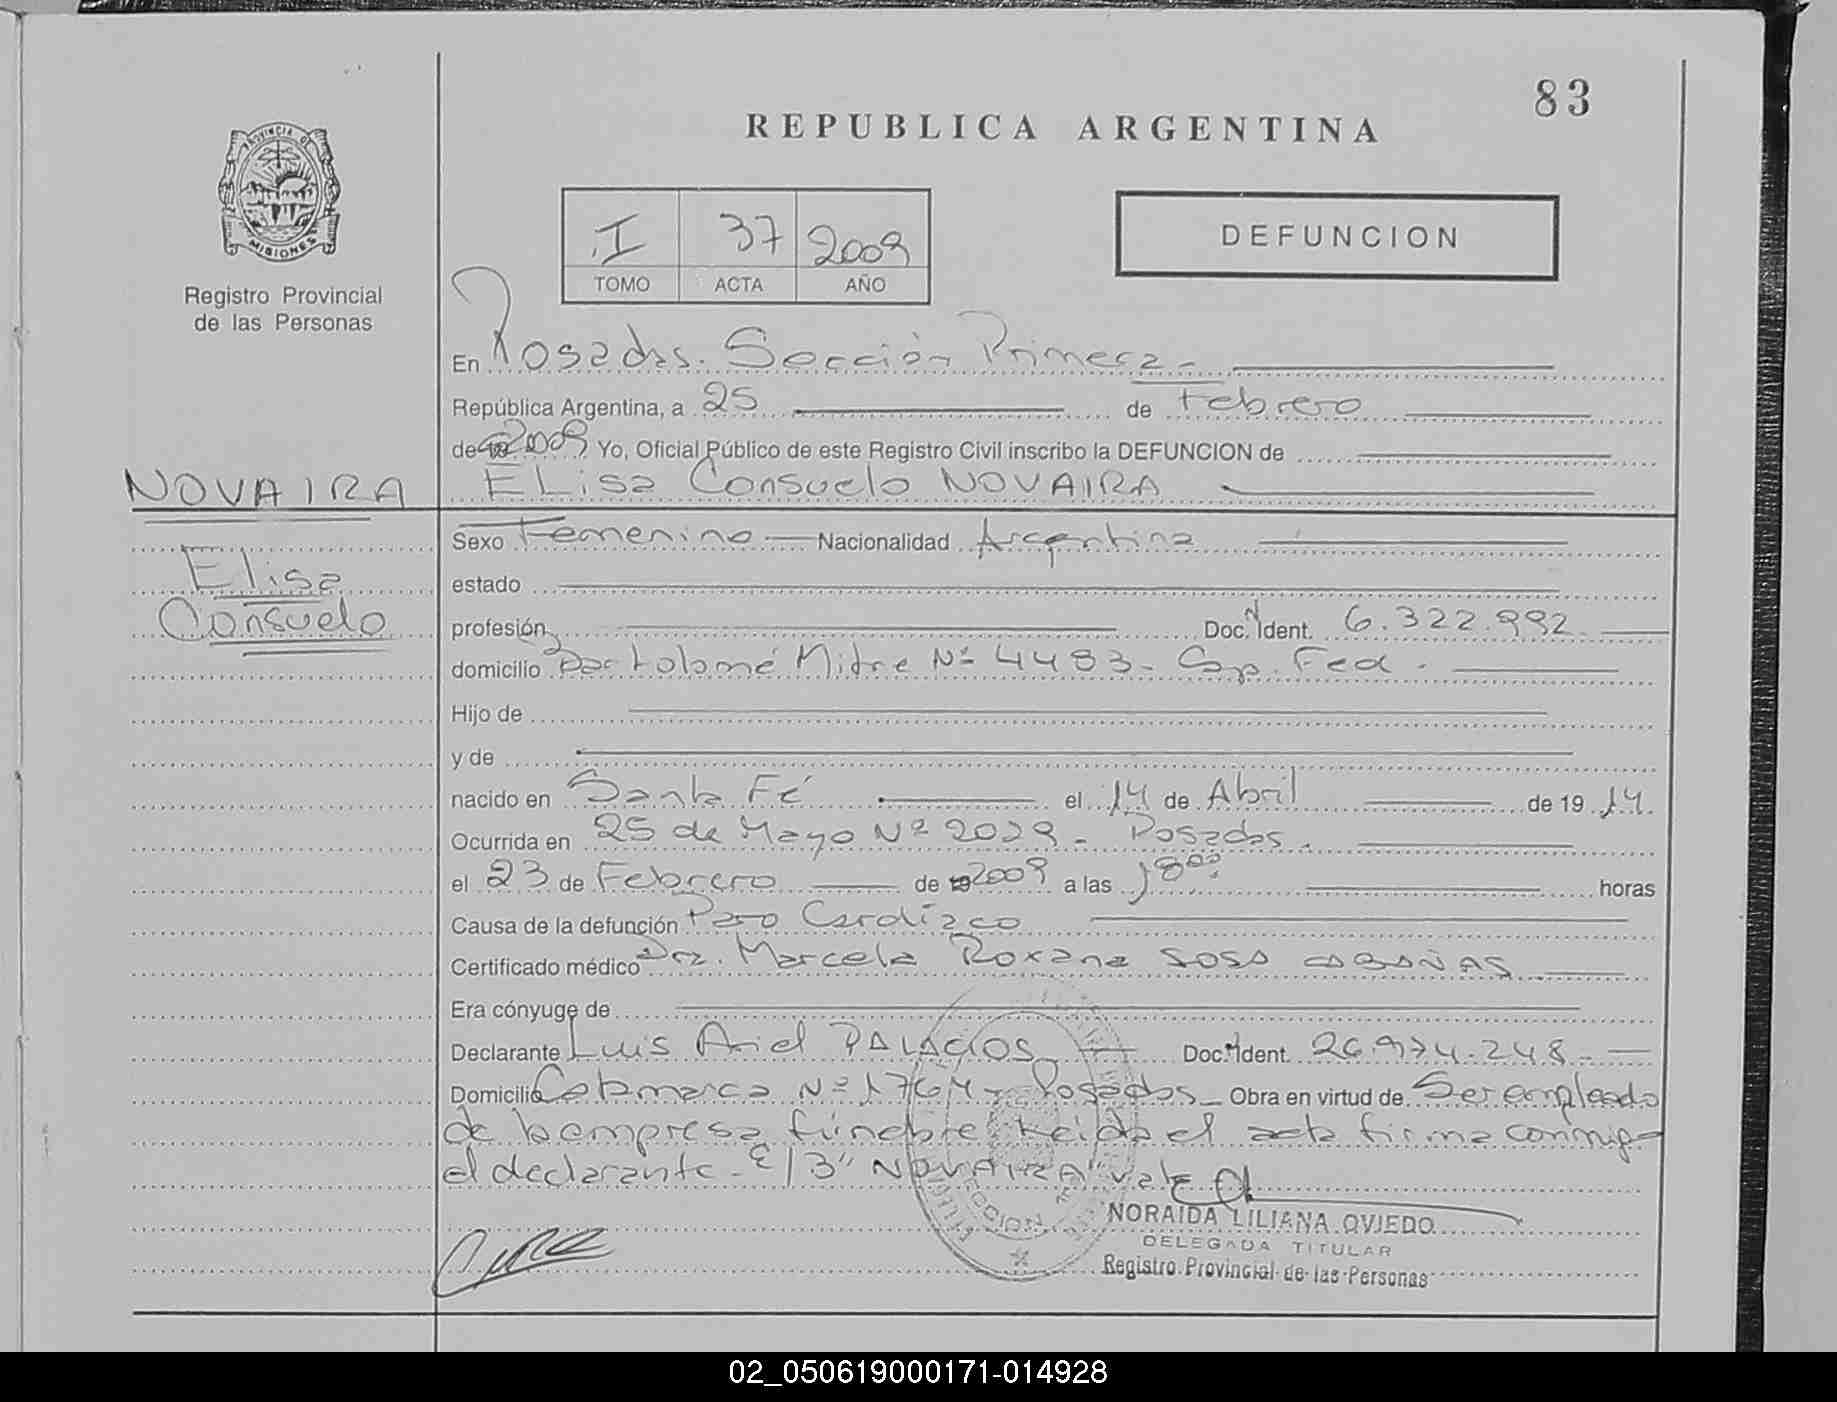 83
REPUBLICA ARGENTINA
PROVINCIA DE
MISIONES
Registro Provincial
de las Personas
I 37 2009
TOMO ACTA AÑO
DEFUNCION
En Posadas. Sección Primera -
República Argentina, a 25 de Febrero
de 19 2009 Yo, Oficial Público de este Registro Civil inscribo la DEFUNCION de
NOVAIRA
Elisa
Consuelo
ELisa Consuelo NOVAIRA
Sexo Femenino Nacionalidad Argentina
estado
profesión Doc. N Ident. 6.322.992.
domicilio Bartolomé Mitre Nº 4483 - Cap. Fed.
Hijo de
y de
nacido en Santa Fé el 14 de Abril de 19 14.
Ocurrida en 25 de Mayo Nº 2029 - Posadas.
el 23 de Febrero de 19 2009 a las 18⁰⁰ horas
Causa de la defunción Paro Cardíaco
Certificado médico Dra. Marcela Roxana SOSA CABAÑAS
Era cónyuge de
Declarante Luis Ariel PALACIOS Doc. N Ident. 26.974.248.
Domicilio Catamarca Nº 1764 - Posadas - Obra en virtud de Ser empleado
de la empresa fúnebre Leida el acta firma conmigo
el declarante - E/3" NOVAIRA" vale
NORAIDA LILIANA OVIEDO
DELEGADA TITULAR
Registro Provincial de las Personas
02_050619000171-014928